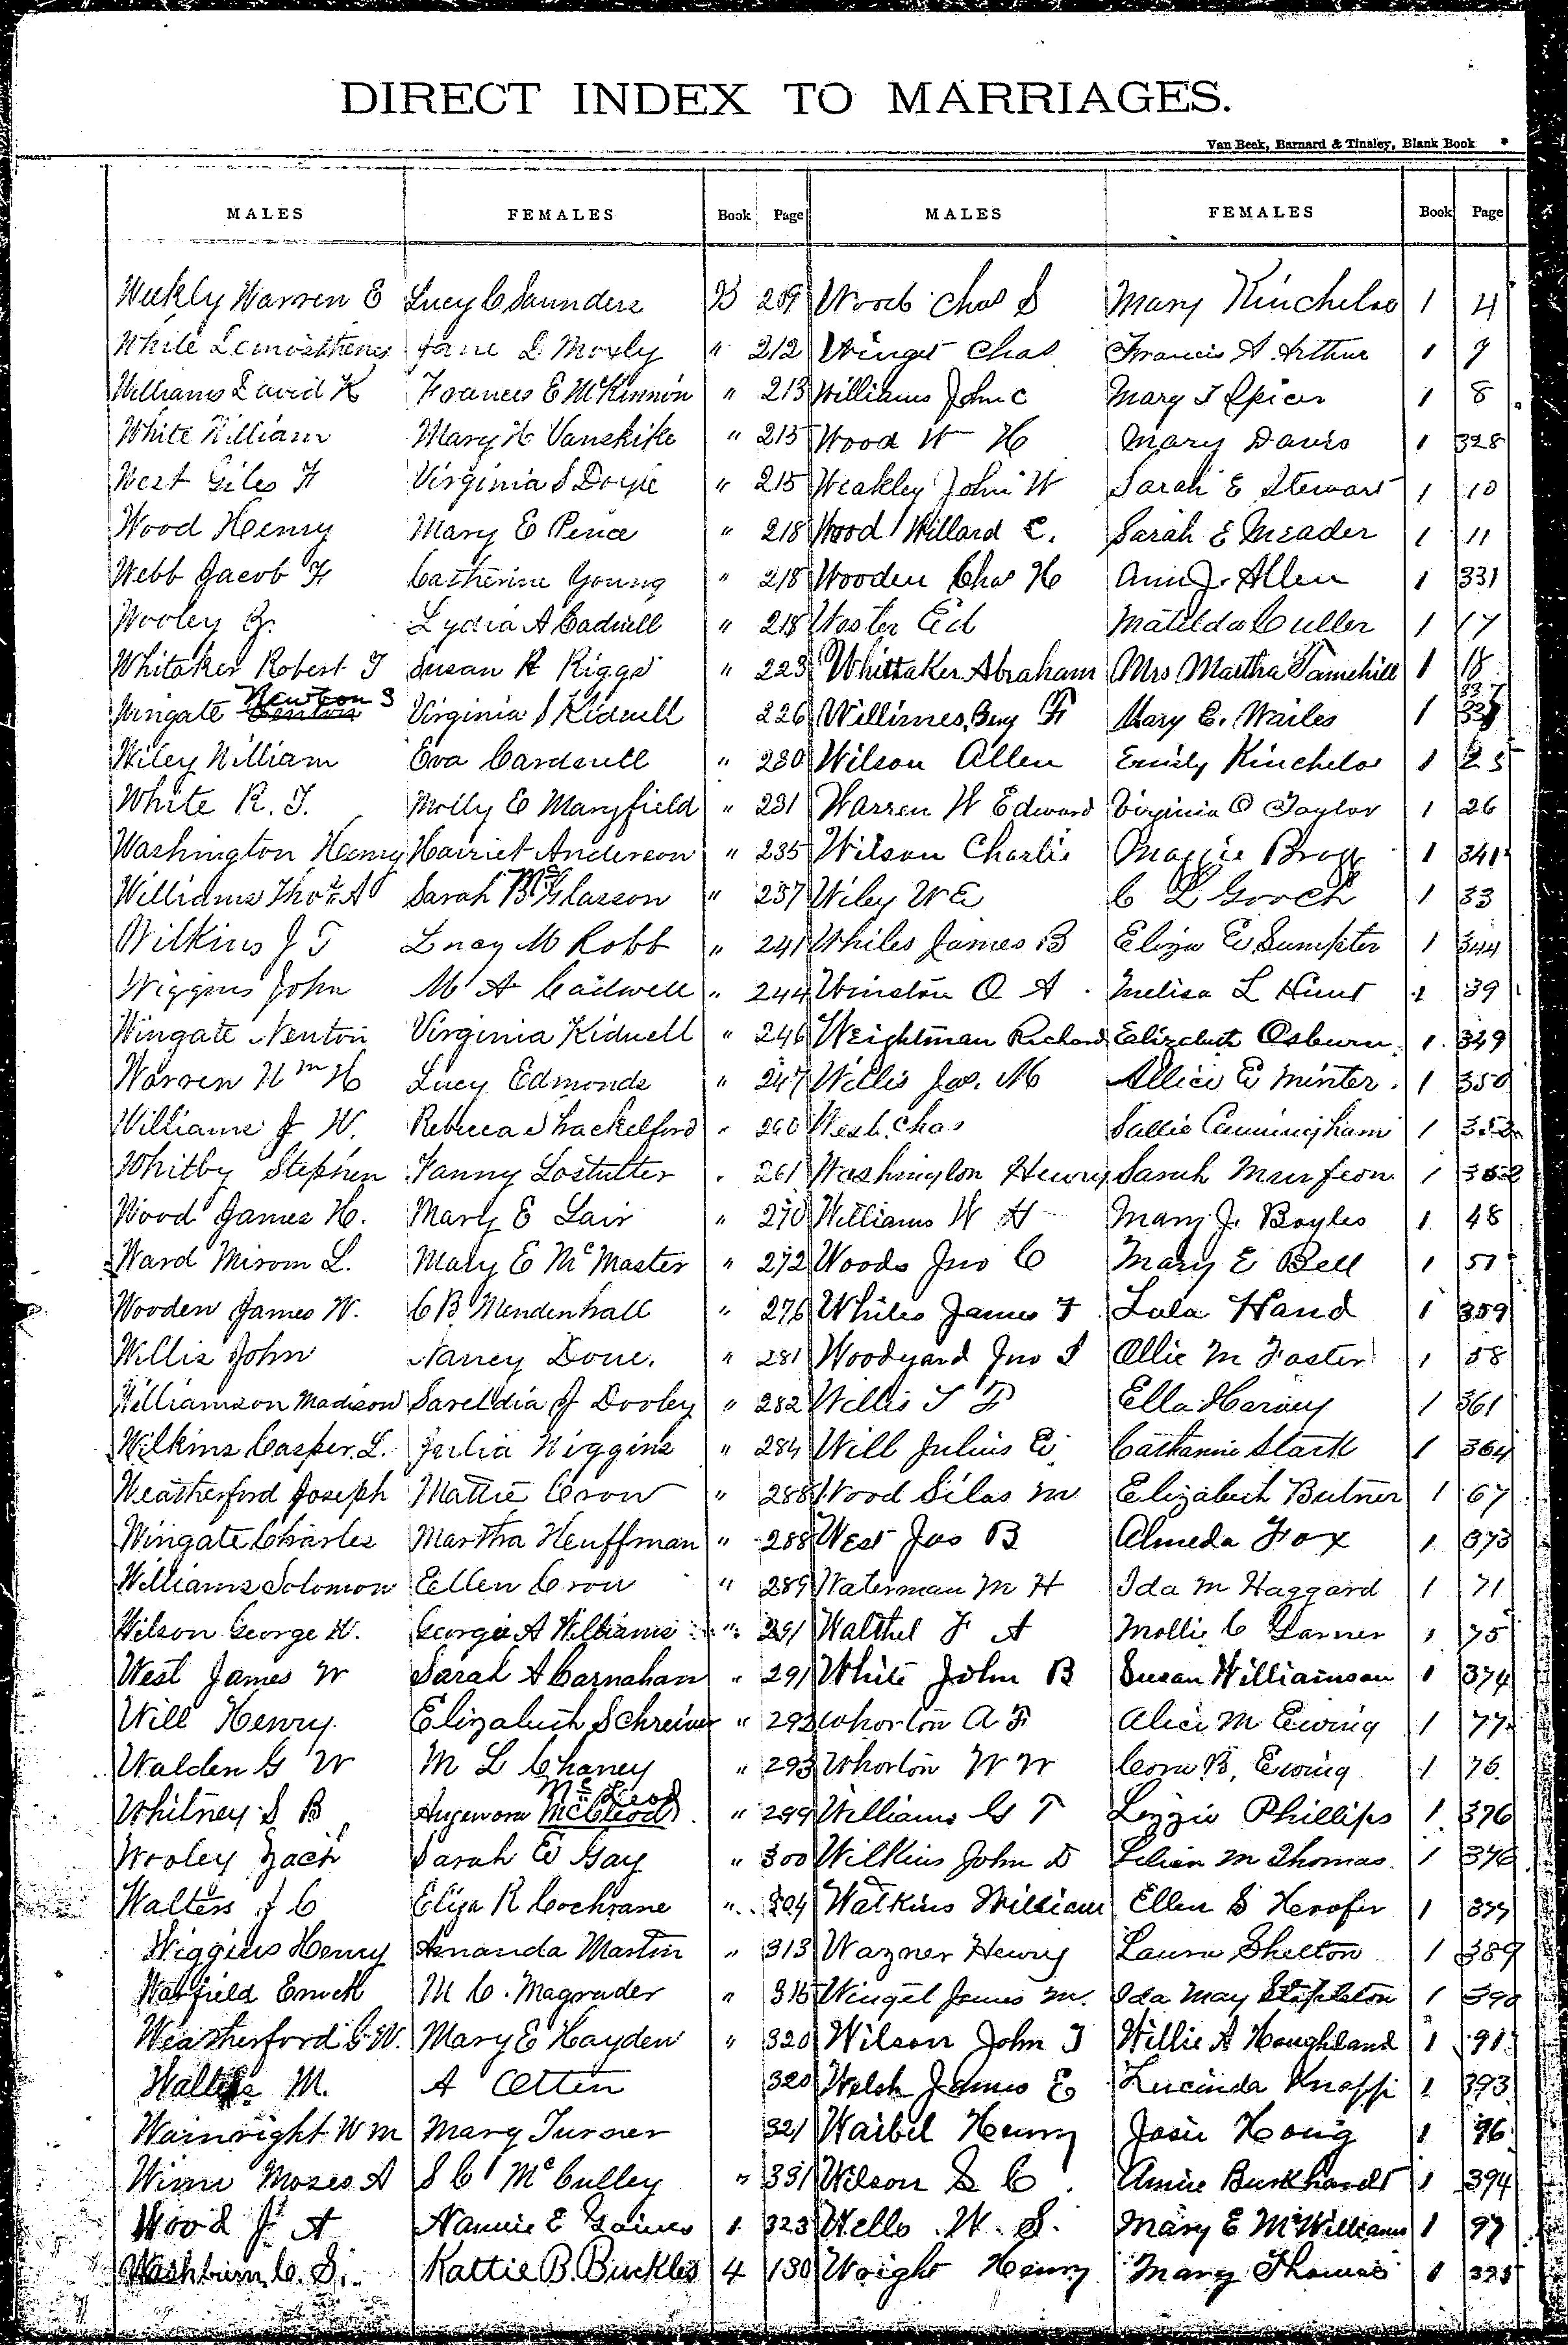 DIRECT INDEX TO MARRIAGES.
Van Beek, Barnard & Tinsley, Blank Book
MALES FEMALES Book Page MALES FEMALES Book Page
Weekly Warren E Lucy C Saunders B 209 Wood Chas S Mary Kincheloe 1 4
White Demosthenes Jane D Moxly " 212 Winget Chas Francis A Arthur 1 7
Williams David K Frances E McKinnon " 213 Williams John C Mary T Spicer 1 8
White William Mary H Vanskike " 215 Wood W H Mary Davis 1 328
West Giles H Virginia S Doyle " 215 Weakley John W Sarah E Stewart 1 10
Wood Henry Mary E Pence " 218 Wood Willard C. Sarah E Meader 1 11
Webb Jacob H Catherine Young " 218 Wooden Chas H Ann J. Allen 1 331
Wooley Z. Lydia A Cadwell " 218 Woster Ed Matilda Culler 1 17
Whitaker Robert T Susan R Riggs " 223 Whittaker Abraham Mrs Martha Tamehill 1 18
Wingate Newton S Virginia S Kidwell 226 Willimes Benj F Mary E. Wailes 1 337
Wiley William Eva Cardwell " 230 Wilson Allen Emily Kincheloe 1 25
White R. T. Molly E Maryfield " 231 Warren W Edward Virginia O Taylor 1 26
Washington Henry Harriet Anderson " 235 Wilson Charlie Maggie Bragg 1 341
Williams Thos A Sarah B McGlasson " 237 Wiley W E C L Gooch 1 33
Wilkins J T Lucy M Robb " 241 Whiles James B Eliza E Sumpter 1 344
Wiggins John M A Cadwell " 244 Winston O A Melisa L Hunt 1 39
Wingate Newton Virginia Kidwell " 246 Weightman Richard Elizabeth Osburn 1 349
Warren Wm H Lucy Edmonds " 247 Willis Jas. M Allice E Minter 1 350
Williams J W. Rebecca Shackelford " 260 West Chas Sallie Cunningham 1 352
Whitby Stephen Fanny Lostutter " 261 Washington Henry Sarah 1 352
Wood James H. Mary E Lair " 270 Williams W H Mary J. Boyles 1 48
Ward Mirom L. Mary E McMaster " 272 Woods Jno C Mary E Bell 1 51
Wooden James W. C B Mendenhall " 276 Whiles James T Lula Hand 1 359
Willis John Nancy Done. " 281 Woodyard Jno S Ollie M Foster 1 58
Williamson Madison Sareldia J Dooley " 282 Willis T F Ella Harvey 1 361
Wilkins Casper L. Julia Wiggins " 284 Will Julius E Catharine Stark 1 364
Weatherford Joseph Mattie Crow " 288 Wood Silas M Elizabeth Butner 1 67
Wingate Charles Martha Heuffman " 288 West Jas B Almeda Fox 1 373
Williams Solomon Ellen Crow " 289 Waterman M H Ida M Haggard 1 71
Wilson George W. George A Williams " 291 Walthel J A Mollie C Garner 1 75
West James W Sarah A Carnahan " 291 White John B Susan Williamson 1 374
Will Henry Elizabeth Schreiner " 293 Whorton A F Alice M Ewing 1 77
Walden G W M L Chaney " 293 Whorton W W Cora B. Ewing 1 76
Whitney S B McLeod " 299 Williams G T Lizzie Phillips 1 376
Wooley Zach Sarah E Gay " 300 Wilkins John D Lilian M Thomas 1 376
Walters J C Eliza R Cochrane " 304 Watkins William Ellen S Hoofer 1 377
Wiggins Henry Amanda Martin " 313 Wazner Henry Laura Shelton 1 389
Warfield Enoch M C. Magruder " 315 Winget James M. Ida May Stapleton 1 390
Weatherford G W. Mary E Hayden " 320 Wilson John T Willie A Houghland 1 91
M. A Otten 320 Welsh James E Lucinda Knapp 1 393
Wainright Wm Mary Turner 321 Waibel Henry Josie Hong 1 96
Winn Moses A S C McCulley " 331 Wilson S C Annie Burkhardt 1 394
Wood J A Nannie E Gaines 1 323 Wells W. S. Mary E McWilliams 1 97
Washburn C. S. Kattie B. Buckles 4 130 Wright Henry Mary Thomas 1 395